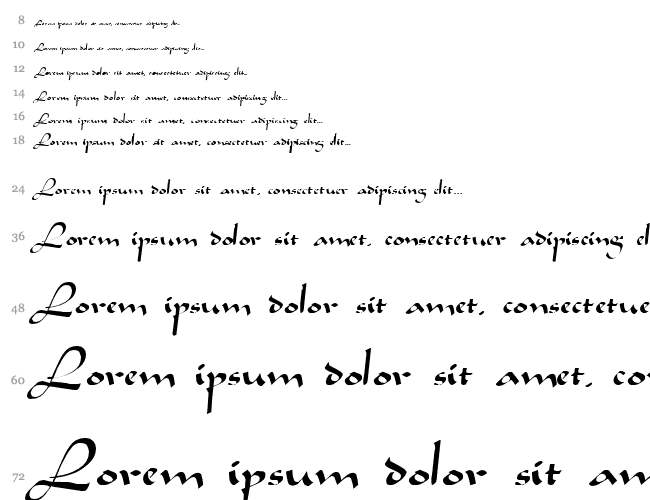 8 Lorem ipsum dolor sit amet, consectetuer adipiscing elit...
10 Lorem ipsum dolor sit amet, consectetuer adipiscing elit...
12 Lorem ipsum dolor sit amet, consectetuer adipiscing elit...
14 Lorem ipsum dolor sit amet, consectetuer adipiscing elit...
16 Lorem ipsum dolor sit amet, consectetuer adipiscing elit...
18 Lorem ipsum dolor sit amet, consectetuer adipiscing elit...
24 Lorem ipsum dolor sit amet, consectetuer adipiscing elit...
36 Lorem ipsum dolor sit amet, consectetuer adipiscing el
48 Lorem ipsum dolor sit amet, consectetue
60 Lorem ipsum dolor sit amet, co
72 Lorem ipsum dolor sit am